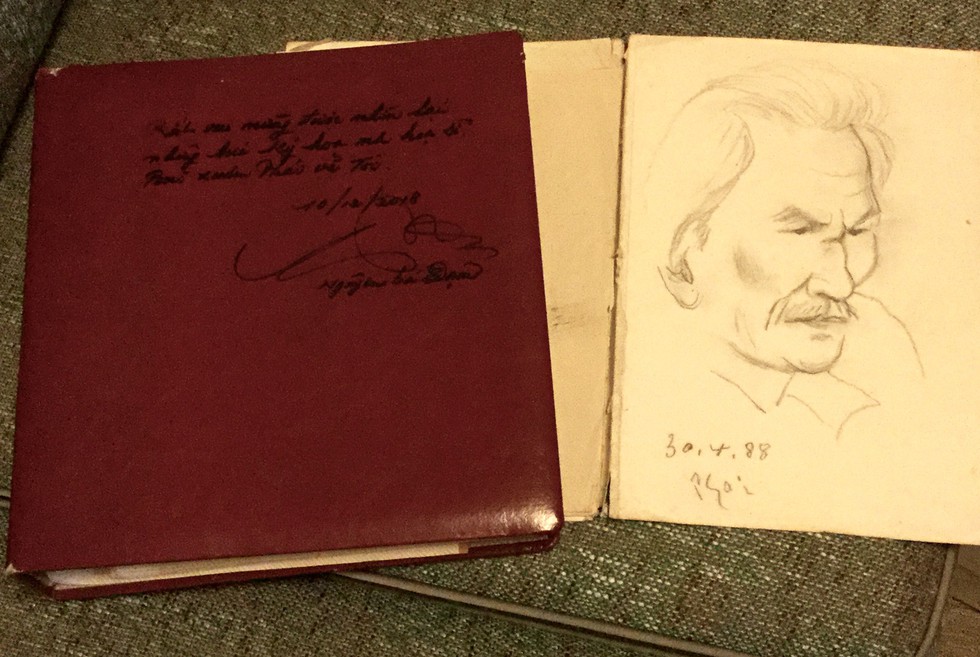 Rất vui mừng được nhìn lại
những bức ký họa mà họa sĩ
Bùi Xuân Phái vẽ Tôi.
10/12/2018
Nguyễn Bá Đạm
30.4.88
Phái